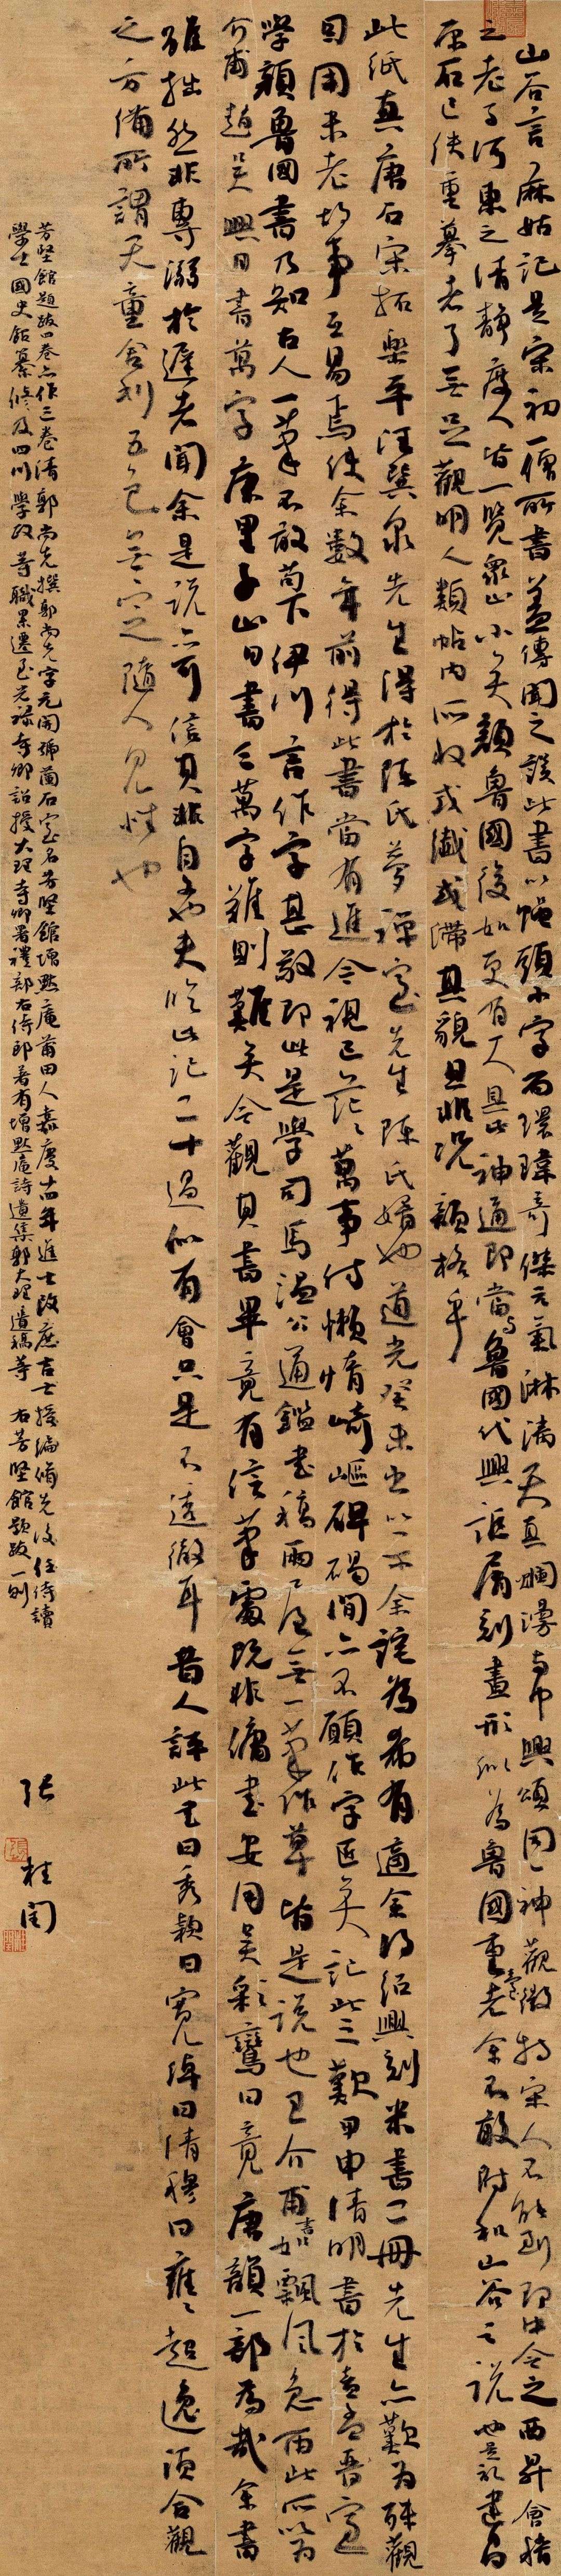 山谷言麻姑記是宋初一僧所書蓋傳聞之誤此書以蠅頭小字而環瑋奇傑元氣淋漓天真爛漫與中興頌同一神觀微特宋人不能到即中令之西昇會稽
之老子河東之清靜度人皆一覽眾山小矣顏魯國後如更有人具此神通即當與魯國代興詎屑刻畫形似為魯國重臺老余不敢附和山谷之說也是記建昌
原石已佚重摹者了無足觀明人類帖內所收或纖或滯具貌且非況韻格乎
此紙真唐石宋拓樂平汪巽泉先生得於陳氏夢禪室先生陳氏婿也道光癸未出以示余詫為希有適余得紹興刻米書二冊先生亦歎為殊觀
因用米老故事互易焉使余數年前得此書當有進今視已茫茫萬事付懶惰崎嶇碑碣間亦不願作字匠矣記此三歎甲申清明書於
學顏魯國書乃知古人一筆不敢苟下伊川言作字甚敬即此是學司馬溫公通鑑書稿兩屋無一筆作草皆是說也王介甫書如飄風急雨此所以為
介甫趙吳興日書萬字康里子山日書三萬字難則難矣今觀其書畢竟有信筆處既非傭書安用吳彩鸞日竟唐韻一部為哉余書
雖拙然非專溺於遲者聞余是說亦可信其非自文也夫臨此記二十過似有會只是不透徹耳昔人評此書曰秀穎曰寬綽曰清穆曰雍雍超逸須合觀
之方備所謂天童舍利五色無定隨人見性也
芳堅館題跋四卷亦作三卷清郭尚先撰郭尚先字元開號蘭石室名芳堅館增默庵莆田人嘉慶十四年進士改庶吉士授編修先後任侍讀
學士國史館纂修及四川學政等職累遷至光祿寺卿詔授大理寺卿署禮部右侍郎著有增默庵詩遺集郭大理遺稿等 右芳堅館題跋一則
張桂閏